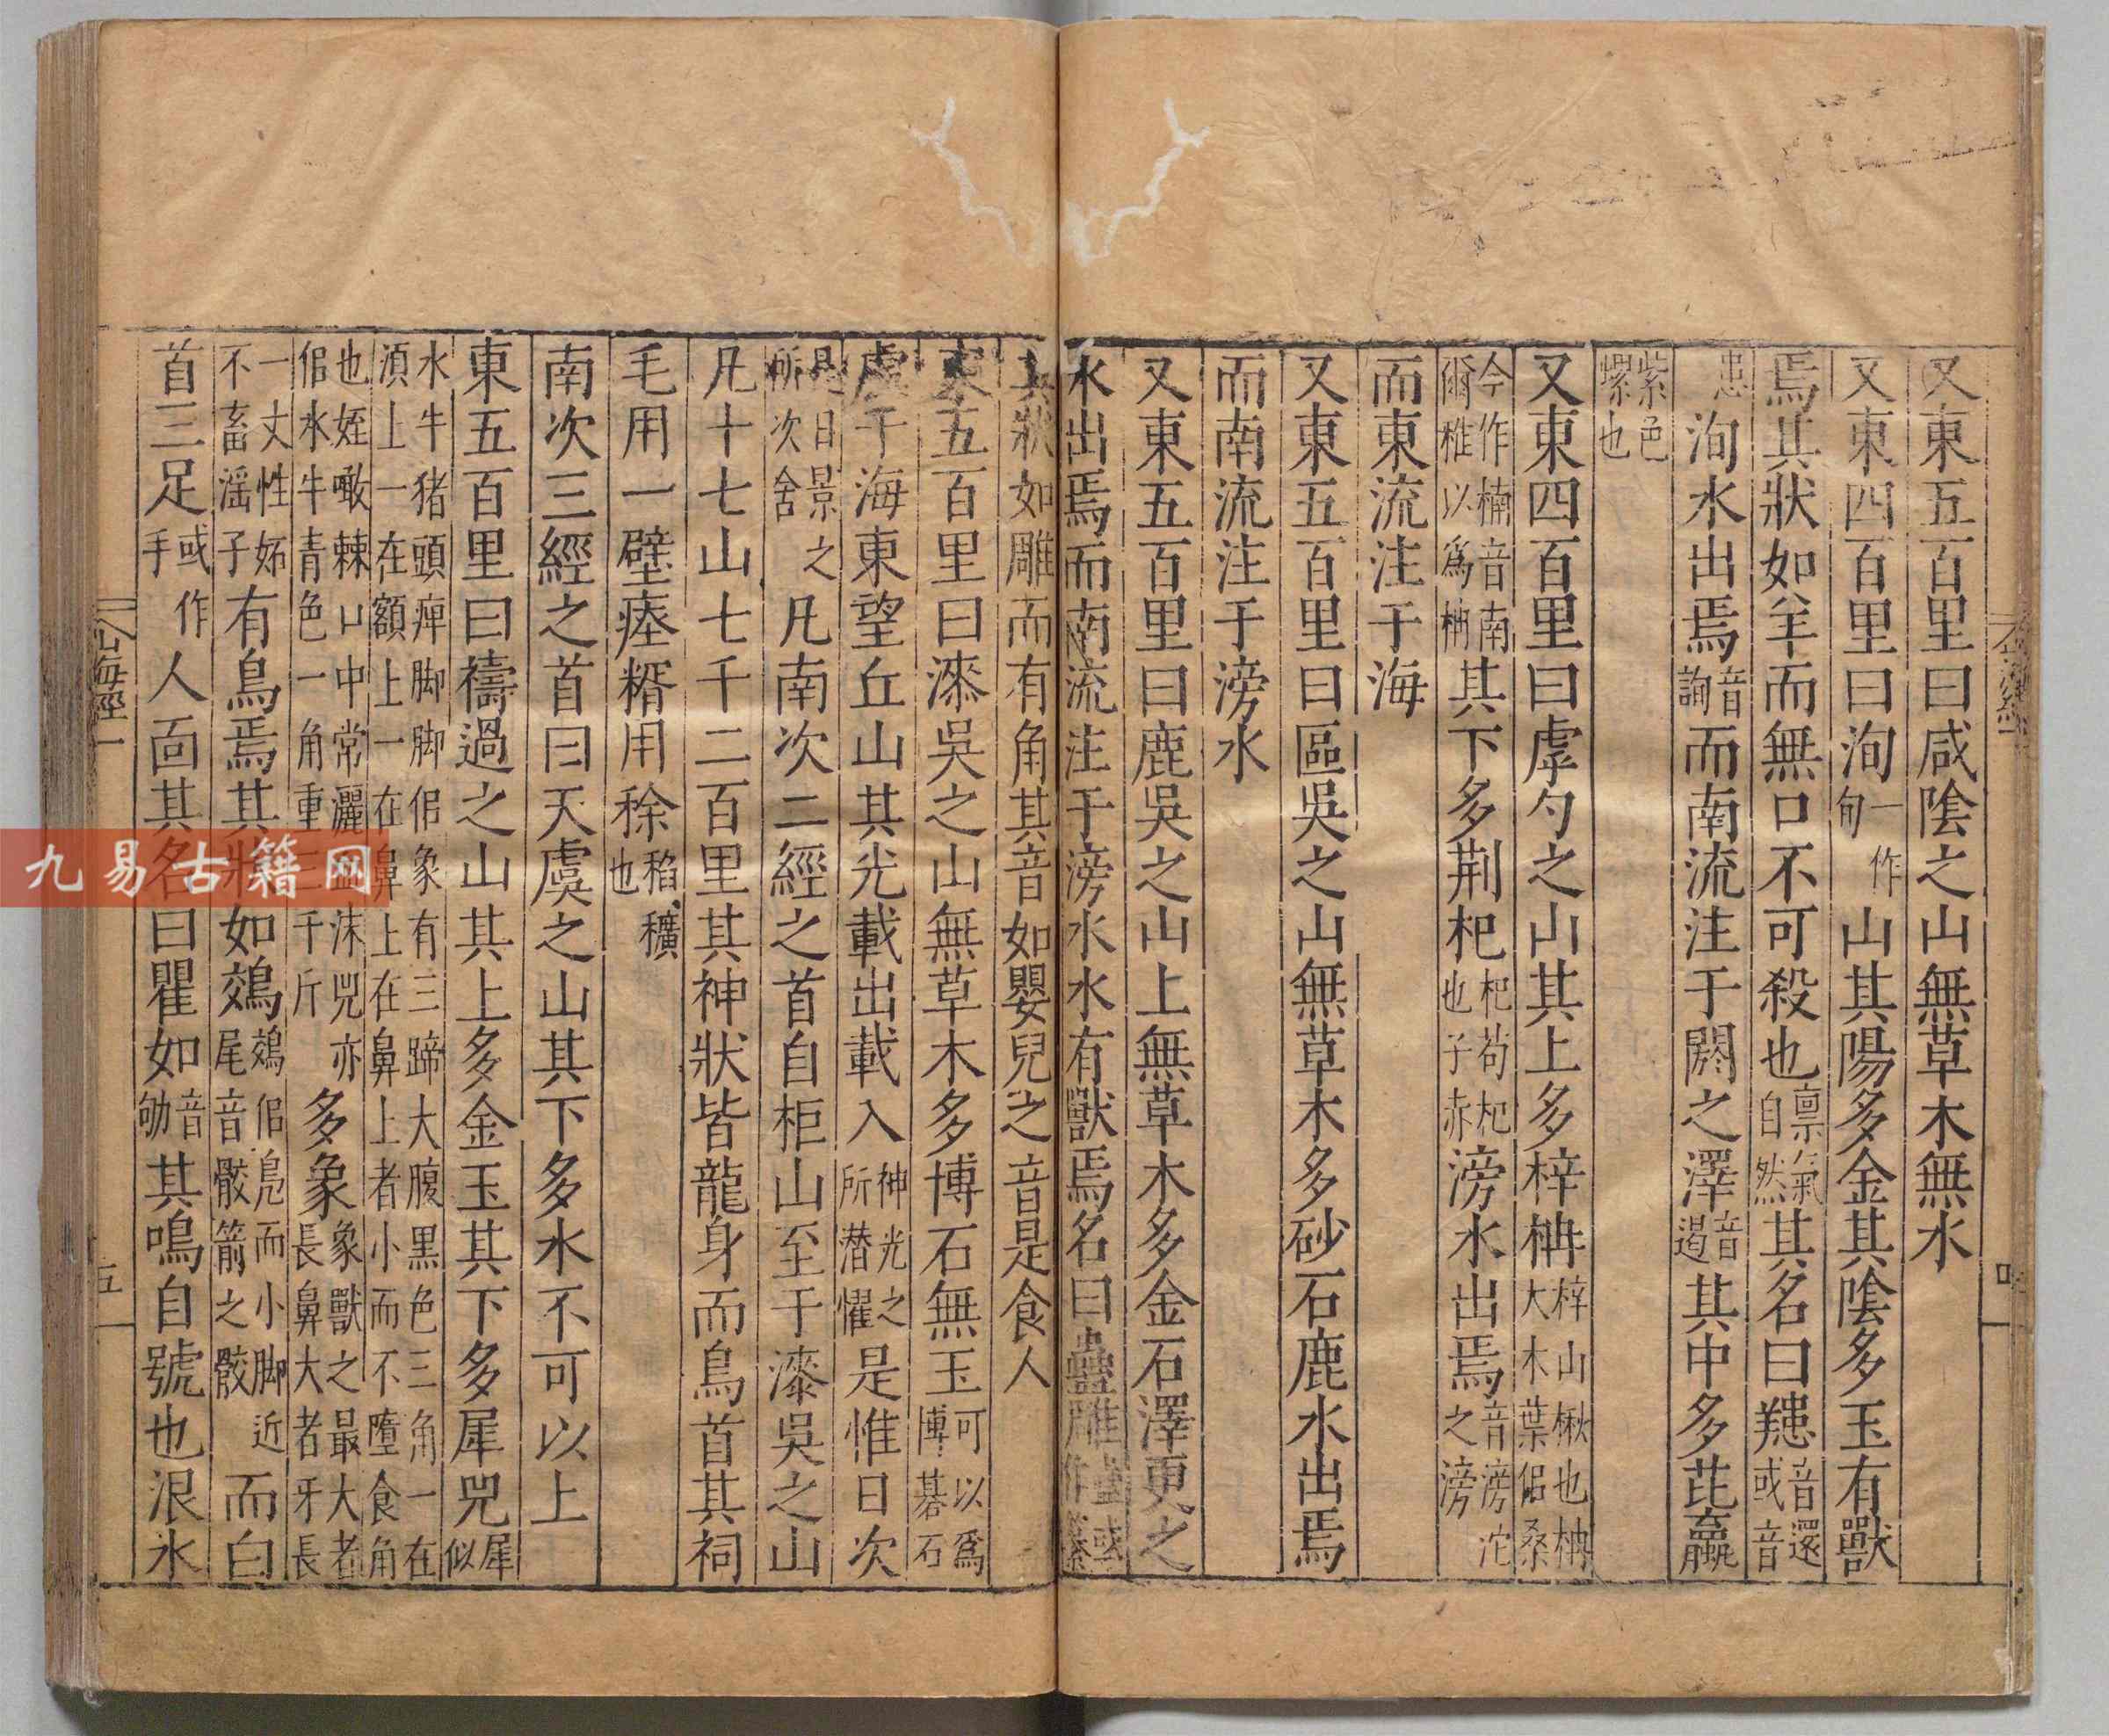 又東五百里曰咸陰之山無草木無水
又東四百里曰洵一作旬山其陽多金其陰多玉有獸
焉其狀如羊而無口不可殺也稟氣自然其名曰䍺音還或音
患洵水出焉音詢而南流注于閼之澤音遏其中多茈蠃
紫色螺也
又東四百里曰虖勺之山其上多梓枬梓山楸也枬大木葉侣桑
今作楠音南爾雅以爲枏其下多荆杞杞苟杞也子赤滂水出焉音滂沱之滂
而東流注于海
又東五百里曰區吳之山無草木多砂石鹿水出焉
而南流注于滂水
又東五百里曰鹿吳之山上無草木多金石澤更之
水出焉而南流注于滂水水有獸焉名曰蠱雕蠱或作纂
其狀如雕而有角其音如嬰兒之音是食人
東五百里曰漆吳之山無草木多博石無玉可以爲博碁石
處于海東望丘山其光載出載入神光之所潜懼是惟日次
是日景之所次舍凡南次二經之首自柜山至于漆吳之山
凡十七山七千二百里其神狀皆龍身而鳥首其祠
毛用一壁瘞糈用稌稻穬也
南次三經之首曰天虞之山其下多水不可以上
東五百里曰禱過之山其上多金玉其下多犀兕犀似
水牛猪頭痺脚脚侣象有三蹄大腹黑色三角一在湏上一在額上一在鼻上在鼻上者小而不墮食角
也姪噉棘口中常灑血沫兕亦侣水牛青色一角重三千斤多象象獸之最大者長鼻大者牙長
一丈性妬不畜滛子有鳥焉其狀如鵁鵁侣鳧而小脚近尾音骹箭之骹而白
首三足或作手人面其名曰瞿如音劬其鳴自號也泿水
山海經一
五
九易古籍网